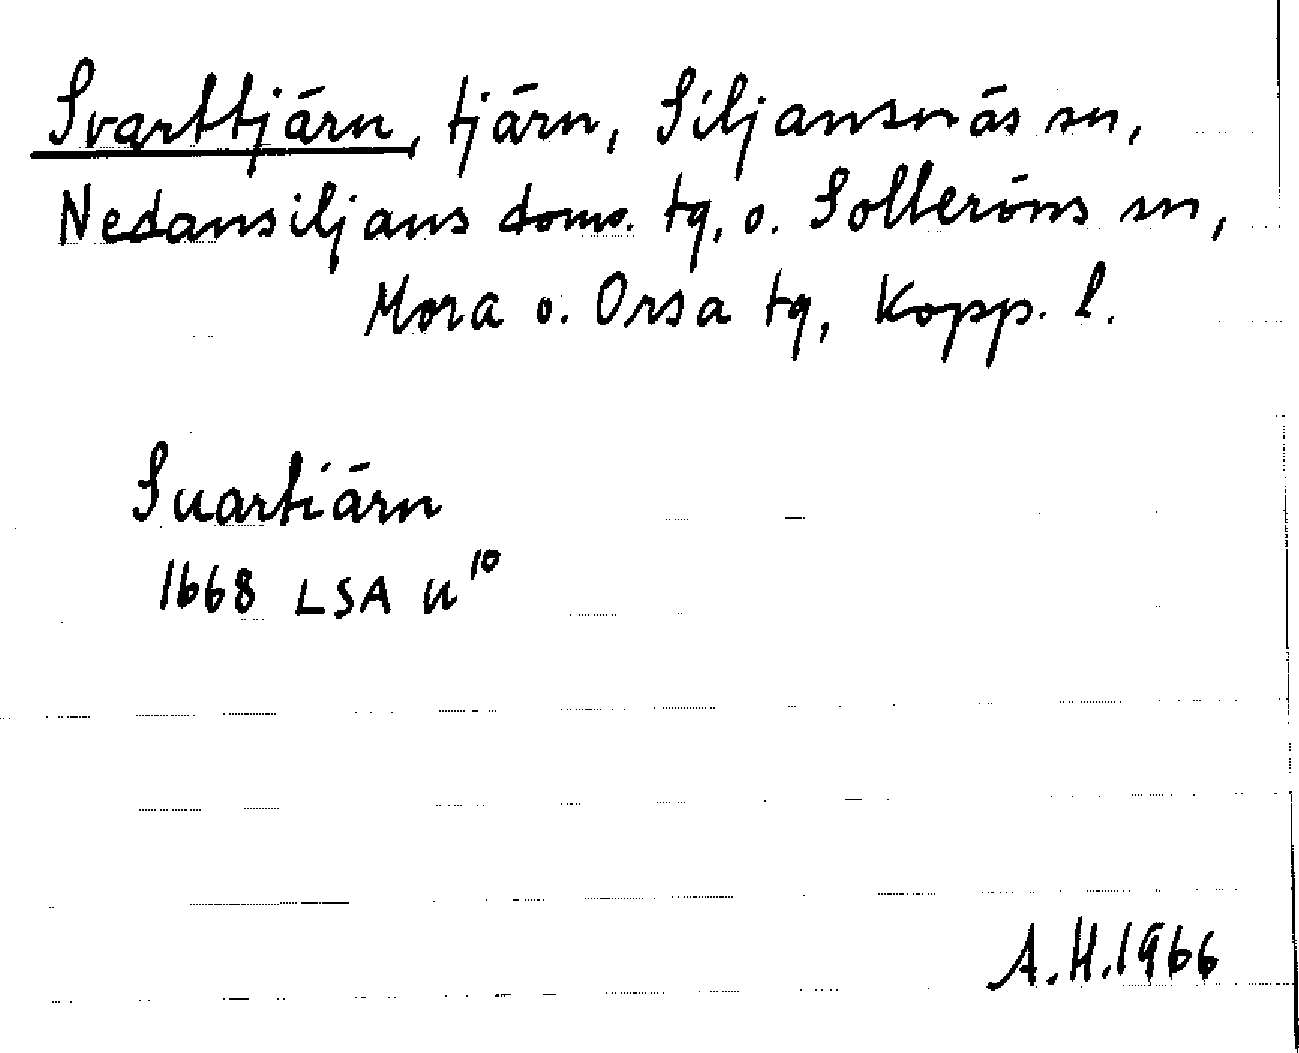 Svarttjärn, tjärn, Siljansnäs sn,
Nedansiljans doms. tg, o. Solleröns sn,
Mora o. Orsa tg, Kopp. l.
Suartiärn
1668 LSA U 10
A.H.1966